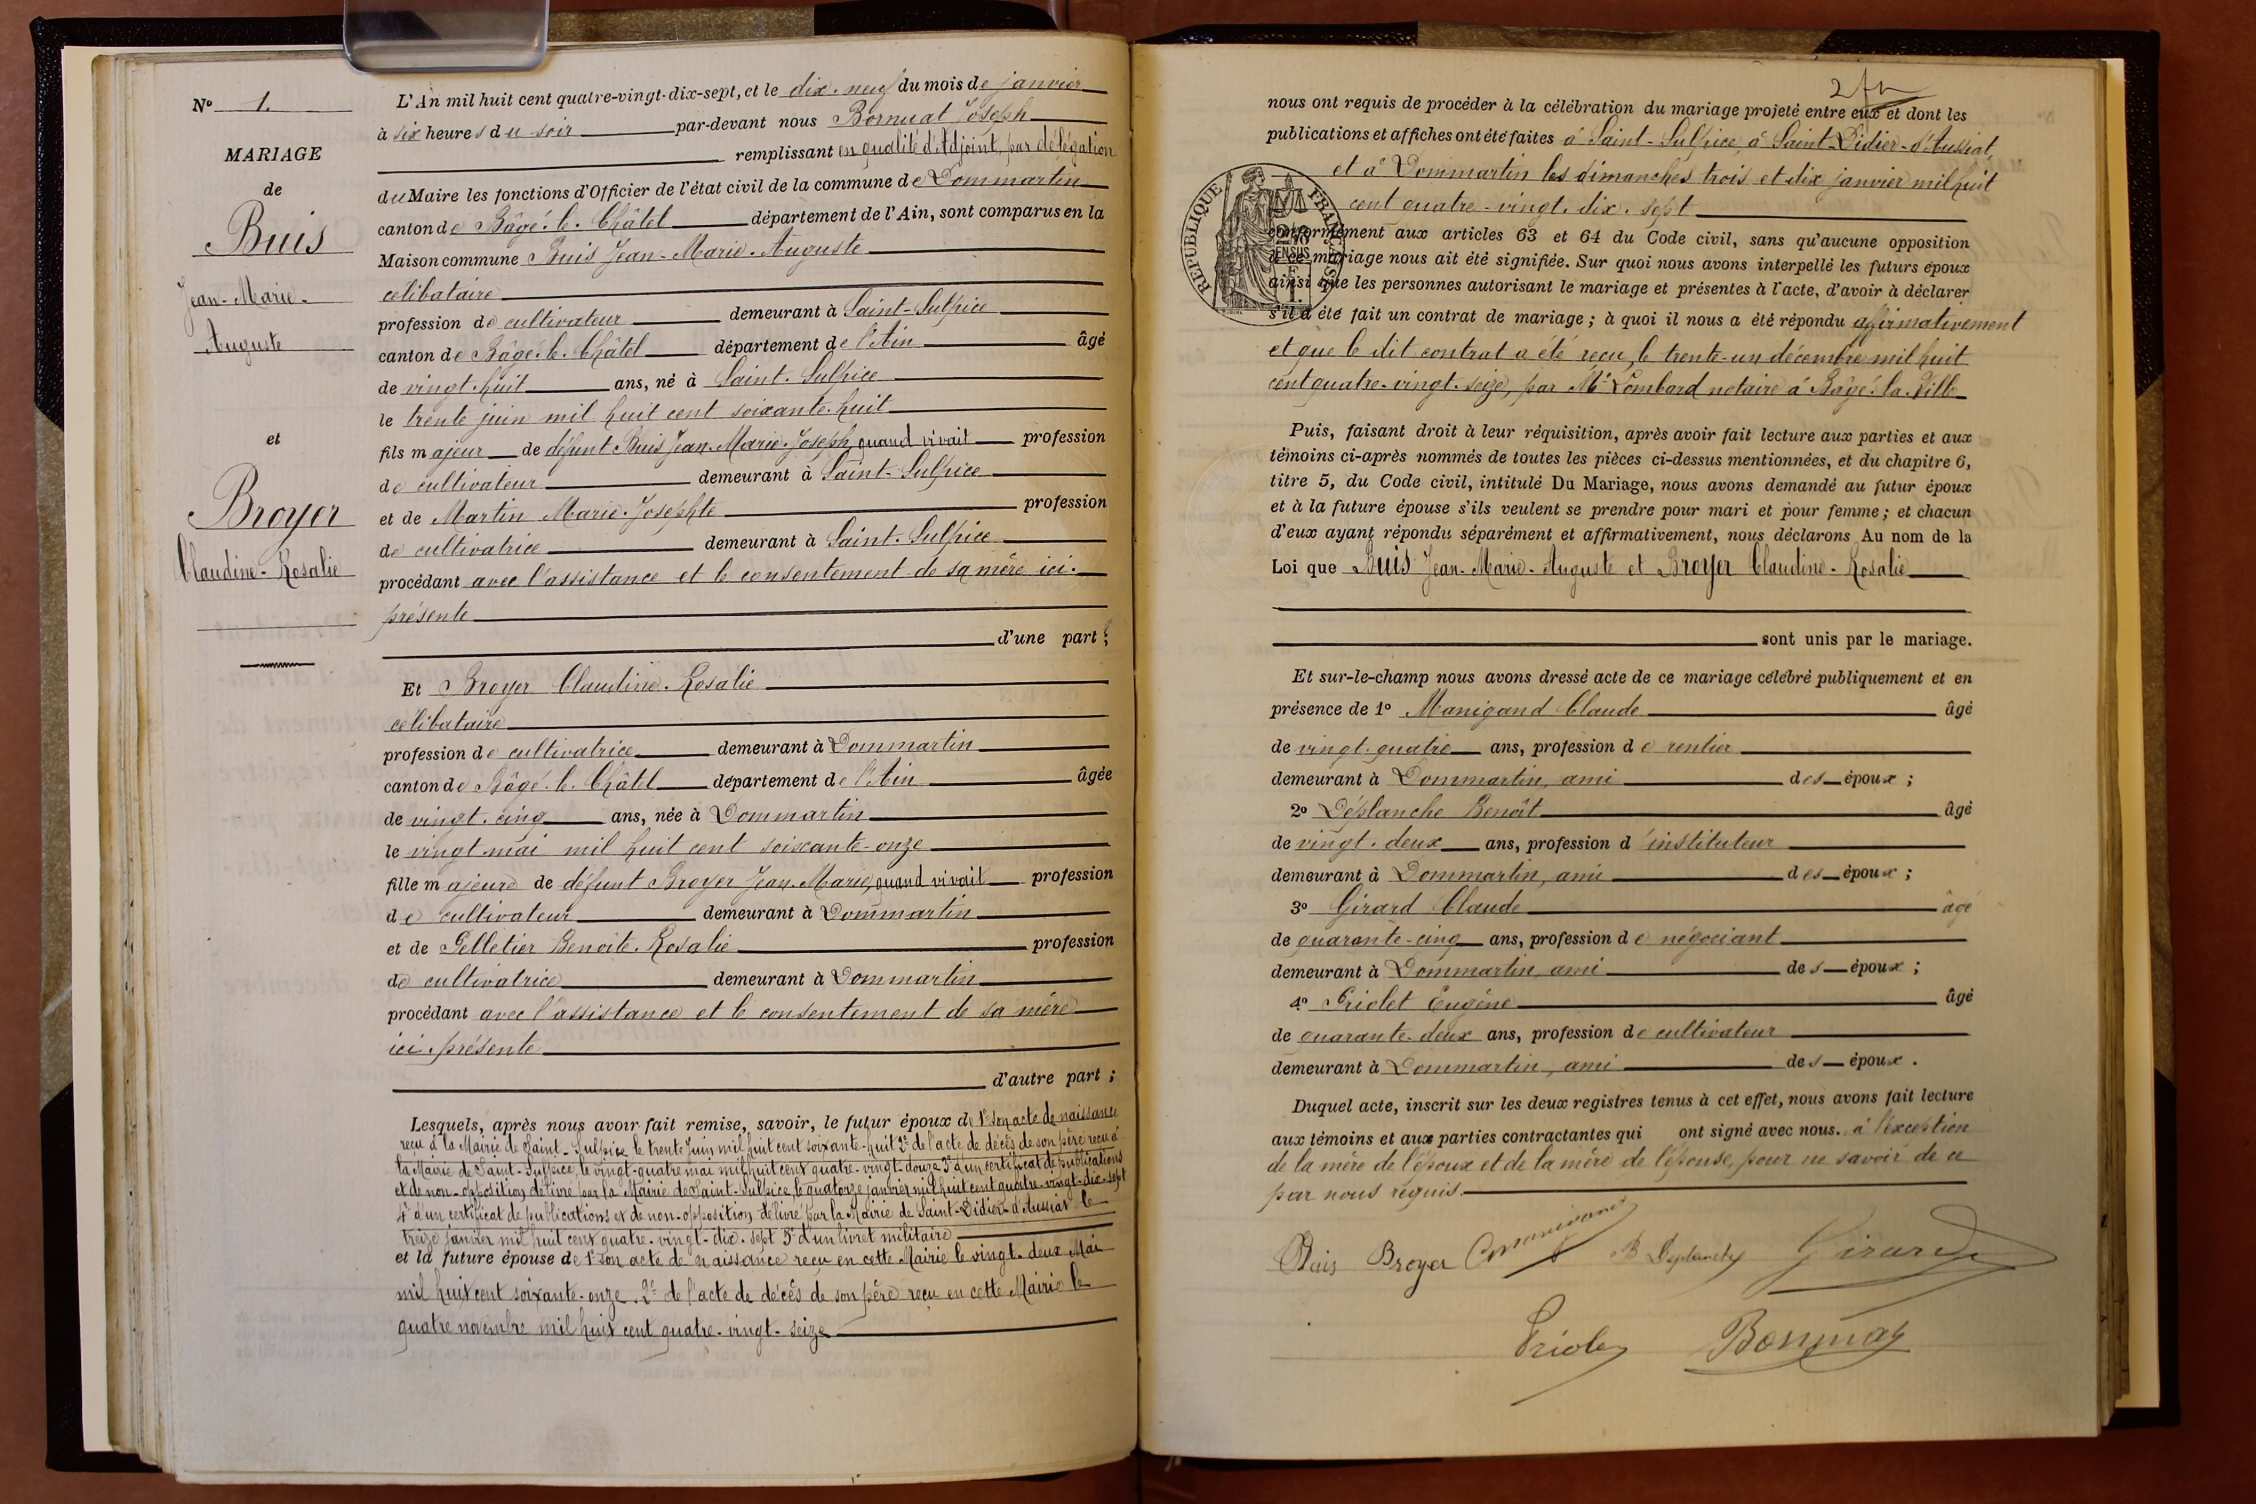 N° 1.
MARIAGE
de
Buis
Jean-Marie-
Auguste
et
Broyer
Claudine-Rosalie
L'An mil huit cent quatre-vingt-dix-sept, et le dix-neuf du mois de janvier
à six heures du soir par-devant nous Joseph
remplissant en qualité d'Adjoint, par délégation
du Maire les fonctions d'Officier de l'état civil de la commune de Dommartin
canton de Bâgé-le-Châtel département de l'Ain, sont comparus en la
Maison commune Buis Jean-Marie-Auguste
célibataire
profession de cultivateur demeurant à Saint-Sulpice
canton de Bâgé-le-Châtel département de l'Ain âgé
de vingt-huit ans, né à Saint-Sulpice
le trente juin mil huit cent soixante-huit
fils majeur de défunt Buis Jean-Marie-Joseph, quand vivait profession
de cultivateur demeurant à Saint-Sulpice
et de Martin Marie-Josephte profession
de cultivatrice demeurant à Saint-Sulpice
procédant avec l'assistance et le consentement de sa mère ici-
présente
d'une part ;
Et Broyer Claudine-Rosalie
célibataire
profession de cultivatrice demeurant à Dommartin
canton de Bâgé-le-Châtel département de l'Ain âgée
de vingt-cinq ans, née à Dommartin
le vingt mai mil huit cent soixante-onze
fille majeure de défunt Broyer Jean-Marie, quand vivait profession
de cultivateur demeurant à Dommartin
et de Pelletier Benoîte-Rosalie profession
de cultivatrice demeurant à Dommartin
procédant avec l'assistance et le consentement de sa mère
ici présente
d'autre part ;
Lesquels, après nous avoir fait remise, savoir, le futur époux de 1° son acte de naissance
reçu à la Mairie de Saint-Sulpice le trente Juin mil huit cent soixante-huit 2° de l'acte de décès de son père reçu à
la Mairie de Saint-Sulpice, le vingt-quatre mai mil huit cent quatre-vingt-douze 3° d'un certificat de publications
et de non-opposition délivré par la Mairie de Saint-Sulpice, le quatorze janvier mil huit cent quatre-vingt-dix-sept
4° d'un certificat de publications et de non-opposition délivré par la Mairie de Saint-Didier-d'Aussiat le
treize janvier mil huit cent quatre-vingt-dix-sept 5° d'un livret militaire
et la future épouse de 1° son acte de naissance reçu en cette Mairie le vingt-deux Mai
mil huit cent soixante-onze. 2° de l'acte de décès de son père reçu en cette Mairie le
quatre novembre mil huit cent quatre-vingt-seize
nous ont requis de procéder à la célébration du mariage projeté entre eux et dont les
publications et affiches ont été faites à Saint-Sulpice, à Saint-Didier-d'Aussiat,
et à Dommartin les dimanches trois et dix janvier mil huit
cent quatre-vingt-dix-sept
RÉPUBLIQUE FRANÇAISE
conformément aux articles 63 et 64 du Code civil, sans qu'aucune opposition
à ce mariage nous ait été signifiée. Sur quoi nous avons interpellé les futurs époux
ainsi que les personnes autorisant le mariage et présentes à l'acte, d'avoir à déclarer
s'il a été fait un contrat de mariage ; à quoi il nous a été répondu affirmativement
et que le dit contrat a été reçu, le trente-un décembre mil huit
cent quatre-vingt-seize, par Me Lombard notaire à Bâgé-la-Ville
Puis, faisant droit à leur réquisition, après avoir fait lecture aux parties et aux
témoins ci-après nommés de toutes les pièces ci-dessus mentionnées, et du chapitre 6,
titre 5, du Code civil, intitulé Du Mariage, nous avons demandé au futur époux
et à la future épouse s'ils veulent se prendre pour mari et pour femme ; et chacun
d'eux ayant répondu séparément et affirmativement, nous déclarons Au nom de la
Loi que Buis Jean-Marie-Auguste et Broyer Claudine-Rosalie
sont unis par le mariage.
Et sur-le-champ nous avons dressé acte de ce mariage célébré publiquement et en
présence de 1° Manigand Claude âgé
de vingt-quatre ans, profession de rentier
demeurant à Dommartin, ami des époux ;
2° Déplanche Benoît âgé
de vingt-deux ans, profession d'instituteur
demeurant à Dommartin, ami des époux ;
3° Girard Claude âgé
de quarante-cinq ans, profession de négociant
demeurant à Dommartin, ami des époux ;
4° Priolet Eugène âgé
de quarante-deux ans, profession de cultivateur
demeurant à Dommartin, ami des époux.
Duquel acte, inscrit sur les deux registres tenus à cet effet, nous avons fait lecture
aux témoins et aux parties contractantes qui ont signé avec nous. à l'exception
de la mère de l'époux et de la mère de l'épouse, pour ne savoir de ce
par nous requis.
Buis Broyer B Deplanche Girard